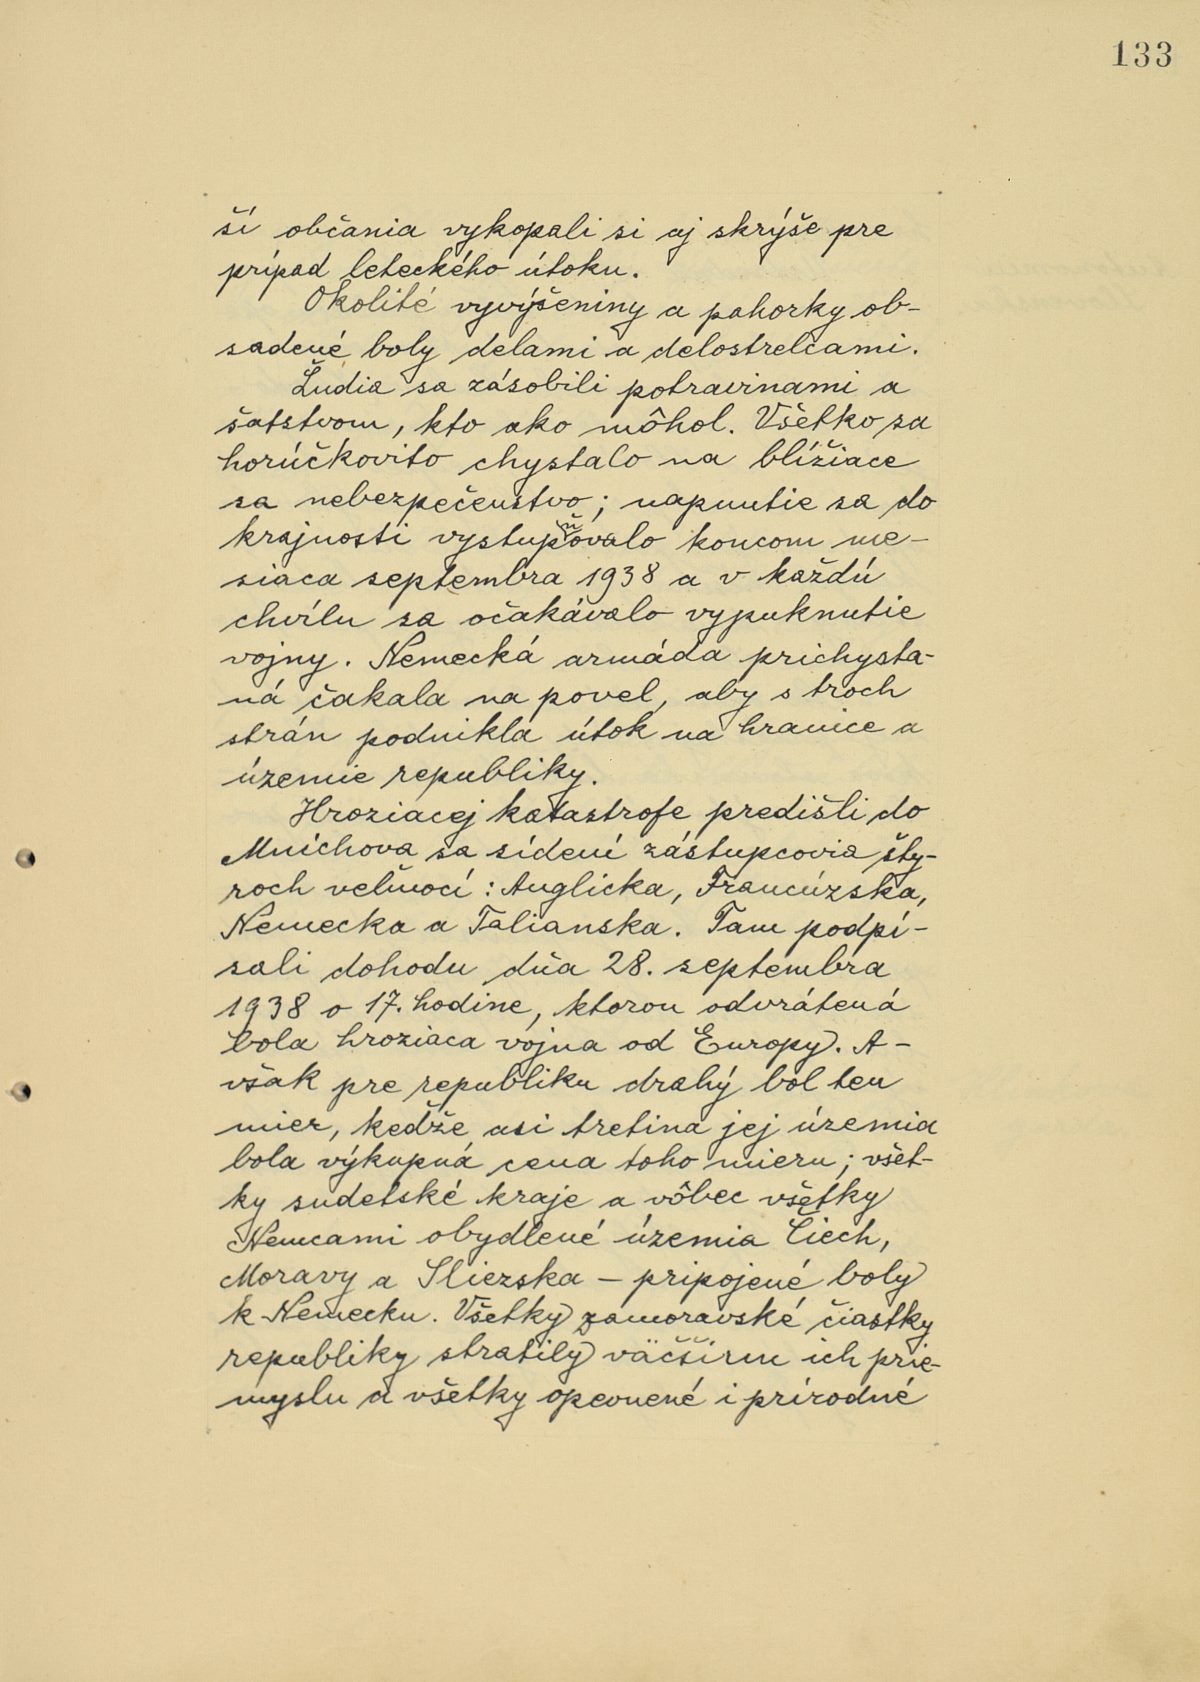 133
ší občania vykopali si aj skrýše pre
prípad leteckého útoku.
Okolité vyvýšeniny a pahorky ob-
sadené boly delami a delostrelcami.
Ľudia sa zásobili potravinami a
šatstvom, kto ako môhol. Všetko sa
horúčkovito chystalo na blížiace
sa nebezpečenstvo; napnutie sa do
krajnosti vystupňovalo koncom me-
siaca septembra 1938 a v každú
chvílu sa očakávalo vypuknutie
vojny. Nemecká armáda prichysta-
ná čakala na povel, aby s troch
strán podnikla útok na hranice a
územie republiky.
Hroziacej katastrofe predišli do
Mníchova sa sídení zástupcovia šty-
roch veľmocí: Anglicka, Francúzska,
Nemecka a Talianska. Tam podpí-
sali dohodu dňa 28. septembra
1938 o 17. hodine, ktorou odvrátená
bola hroziaca vojna od Europy. A-
však pre republiku drahý bol ten
mier, keďže asi tretina jej územia
bola výkupná cena toho mieru; všet-
ky sudetské kraje a vôbec všetky
Nemcami obydlené územia Čiech,
Moravy a Sliezska – pripojené boly
k Nemecku. Všetky zamoravské čiastky
republiky stratily väčšinu ich prie-
myslu a všetky opevnené i prírodné